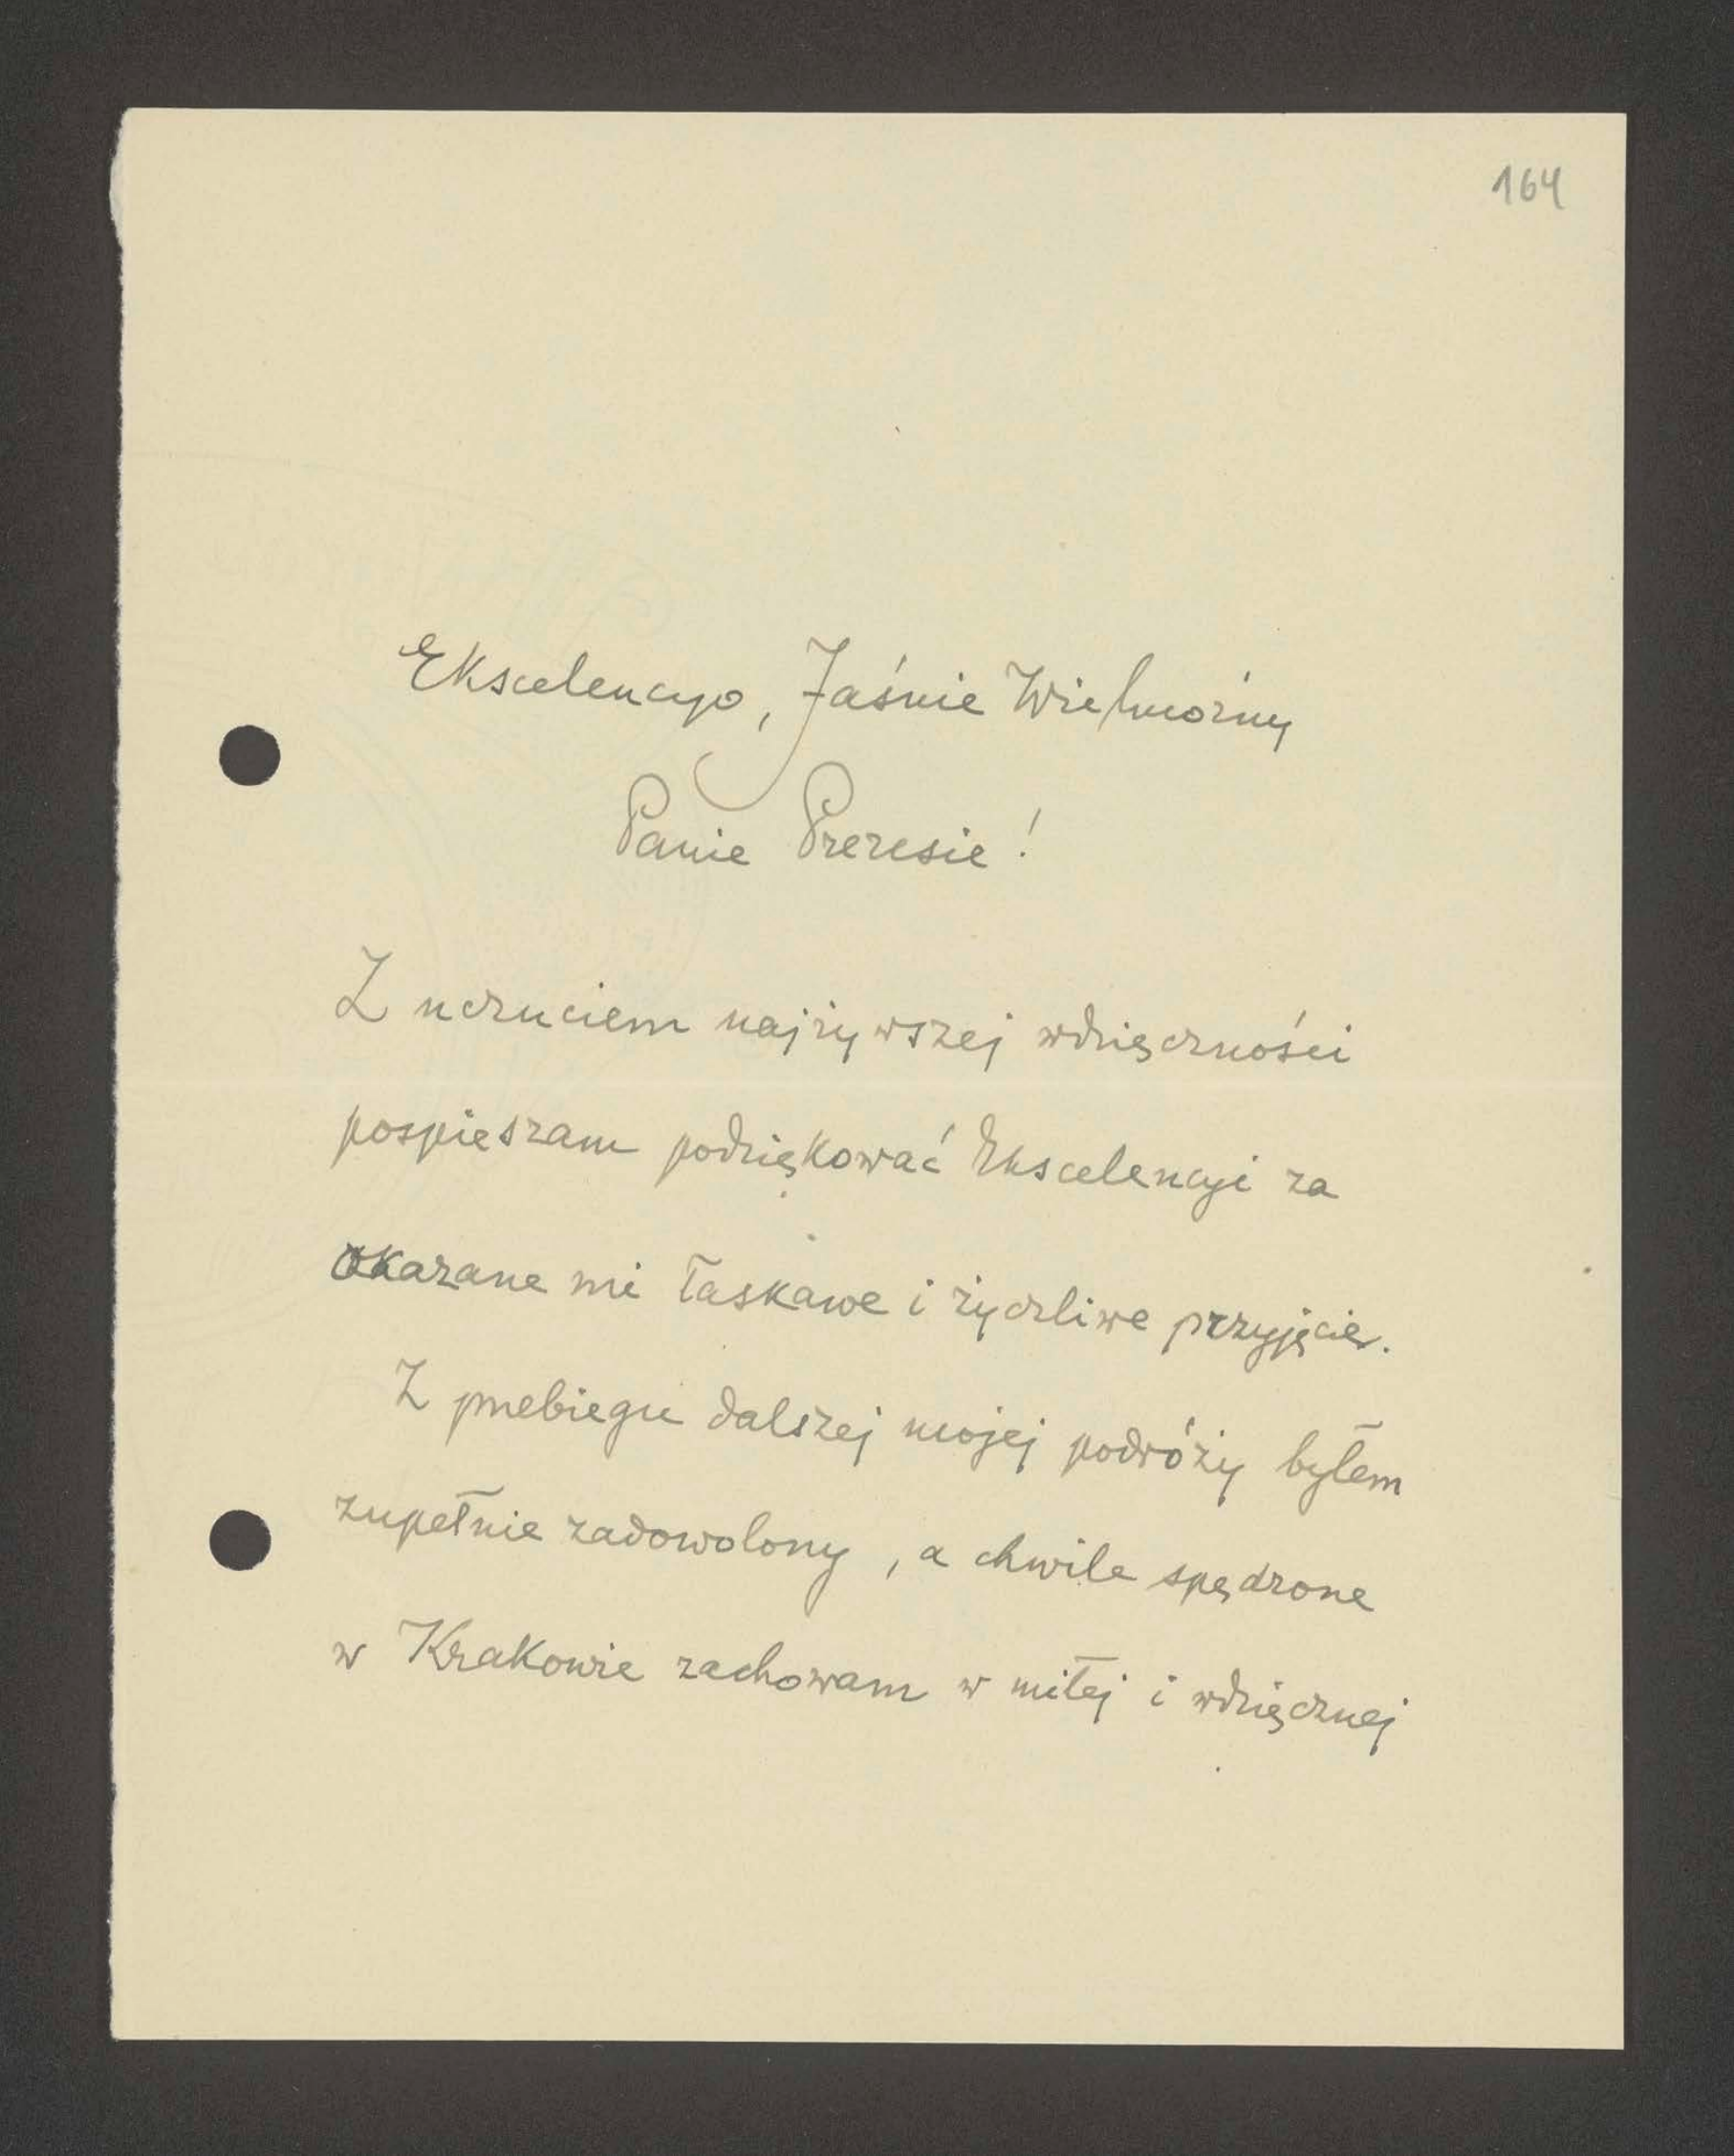 164
Ekscelencyo, Jaśnie Wielmożny
Panie Prezesie!
Z uczuciem najżywszej wdzięczności
pospieszam podziękować Ekscelencyi za
okazane mi łaskawe i życzliwe przyjęcie.
Z przebiegu dalszej mojej podróży byłem
zupełnie zadowolony, a chwile spędzone
w Krakowie zachowam w miłej i wdzięcznej